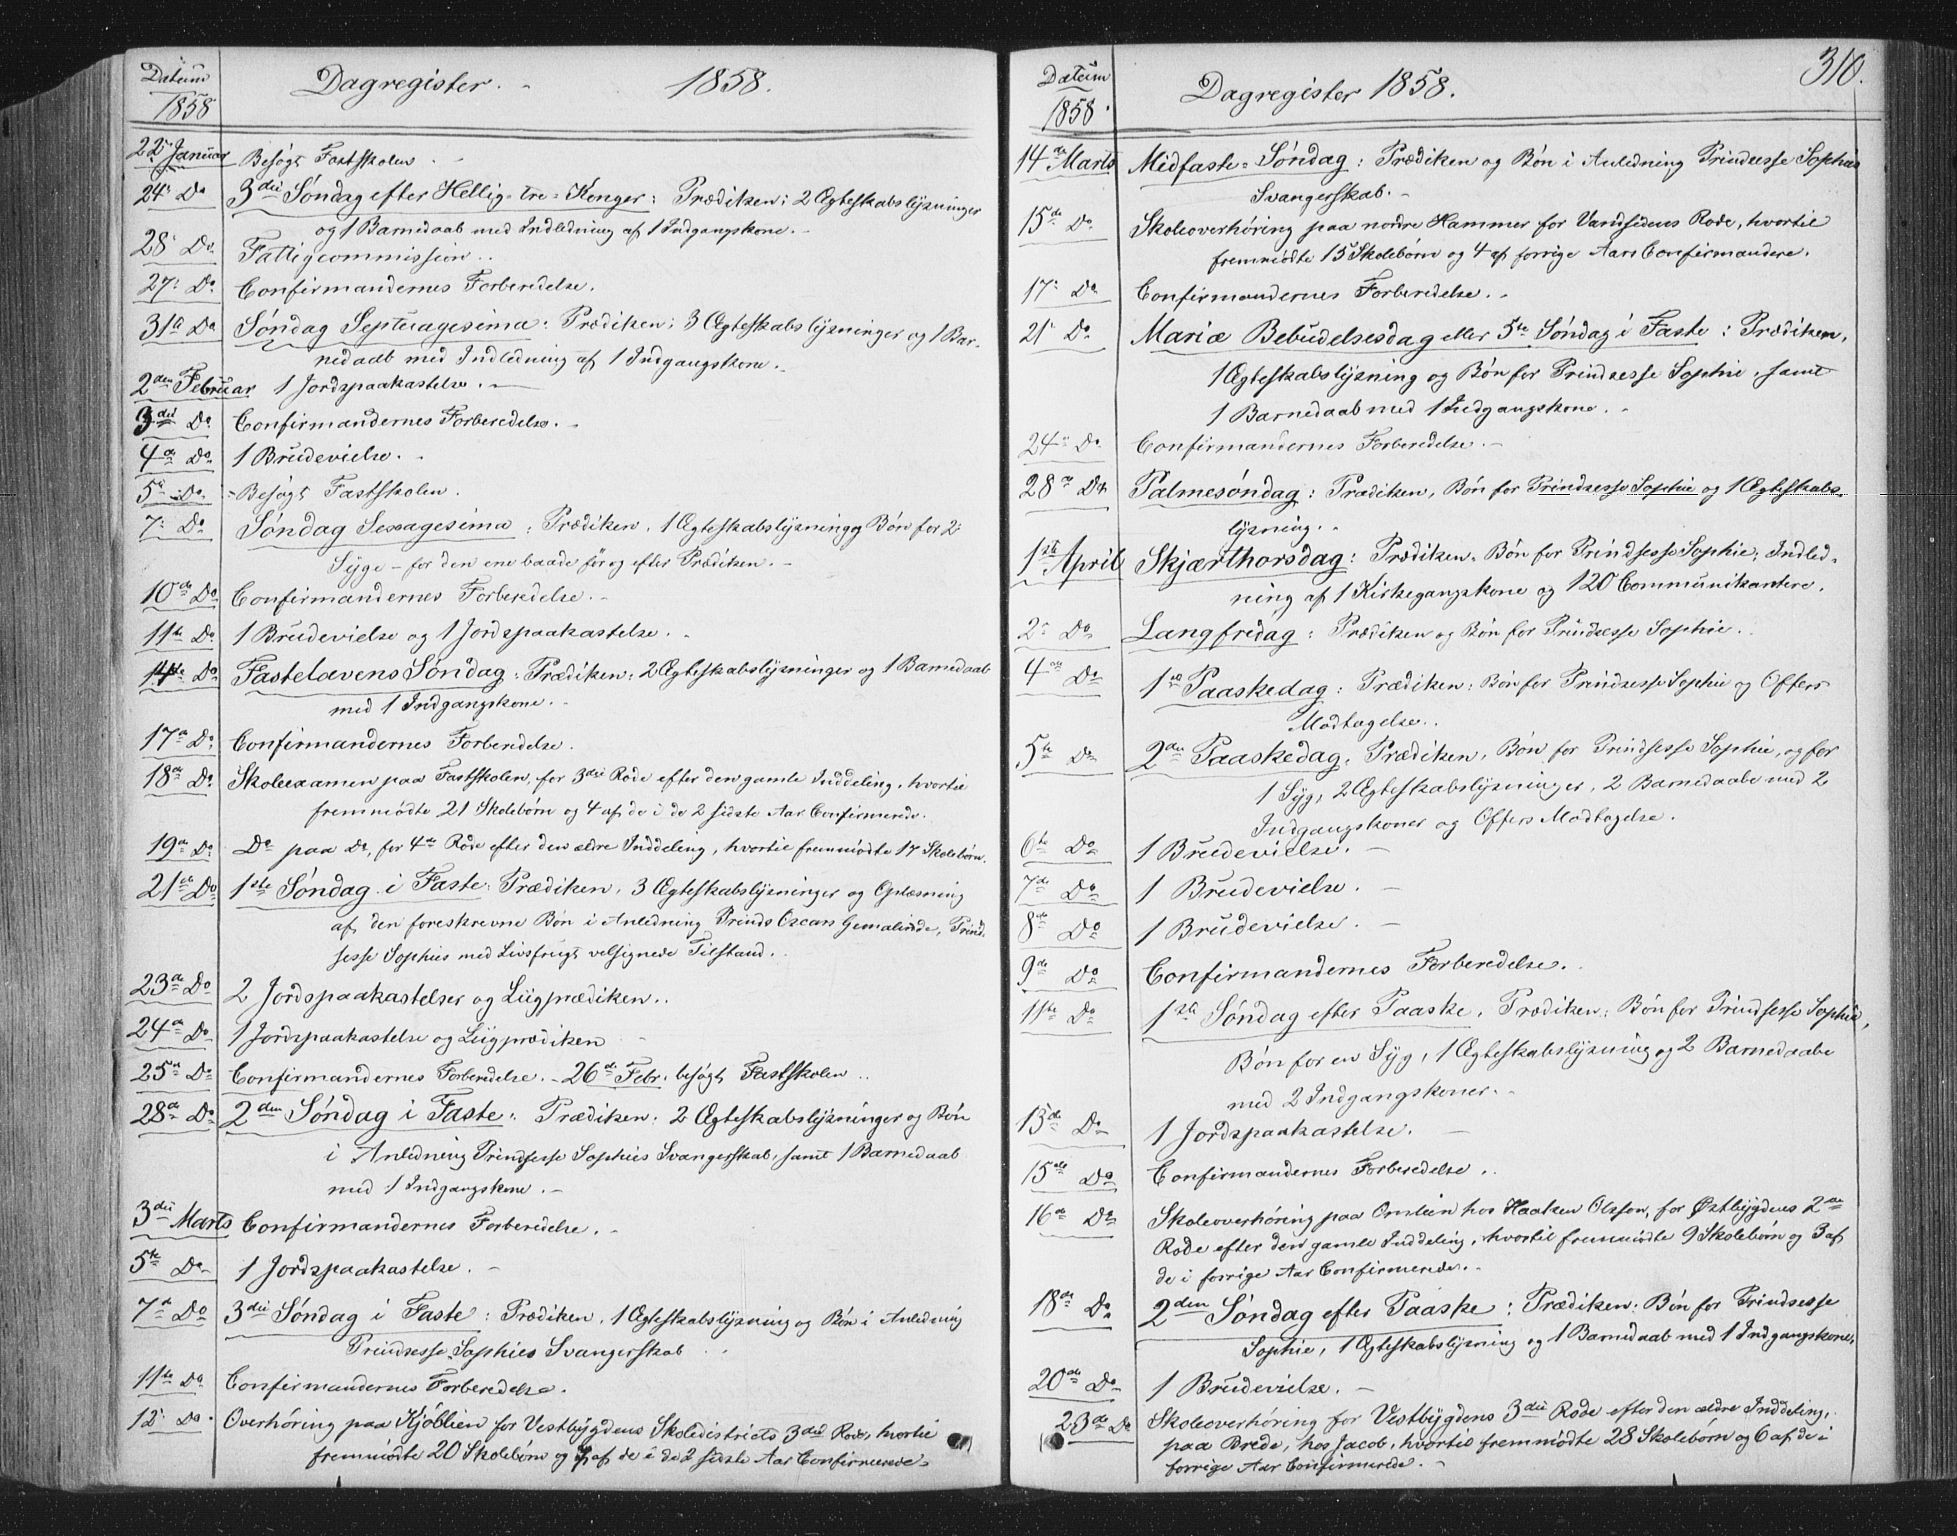 Datum
1858
Dagregister. 1858.
22' Januar Besøgt Fastskolen.
24' Do 3die Søndag efter Hellig-tre-Konger: Prædiken; 2 Ægteskabslysninger
og 1 Barnedaab med Indledning af 1 Indgangskone.
28' Do Fattigcommission.
27' Do Confirmandernes Forberedelse.
31te Do Søndag Septuagesima: Prædiken; 3 Ægteskabslysninger og 1 Bar-
nedaab med Indledning af 1 Indgangskone.
2den Februar 1 Jordspaakastelse.
3die Do Confirmandernes Forberedelse.
4de Do 1 Brudevielse.
5te Do Besøgt Fastskolen.
7' Do Søndag Sexagesima: Prædiken, 1 Ægteskabslysning og Bøn for 2
Syge – for den ene baade før og efter Prædiken.
10de Do Confirmandernes Forberedelse.
11te Do 1 Brudevielse og 1 Jordspaakastelse.
14de Do Fastelavens Søndag: Prædiken; 2 Ægteskabslysninger og 1 Barnedaab
med 1 Indgangskone.
17de Do Confirmandernes Forberedelse.
18de Do Skoleexamen paa Fastskolen, for 3die Rode efter den gamle Inddeling, hvortil
fremmødte 21 Skolebørn og 4 af de i de 2 sidste Aar Confirmerede.
19de Do Do paa Do, for 4de Rode efter den ældre Inddeling, hvortil fremmødte 17 Skolebørn.
21de Do 1ste Søndag i Faste: Prædiken, 3 Ægteskabslysninger og Oplæsning
af den foreskrevne Bøn i Anledning Prinds Oscars Gemalinde, Prind-
sesse Sophies med Livsfrugt velsignede Tilstand.
23de Do 2 Jordspaakastelser og Liigprædiken.
24de Do 1 Jordspaakastelse og Liigprædiken
25de Do Confirmandernes Forberedelse. – 26de Febr. besøgt Fastskolen.
28de Do 2den Søndag i Faste: Prædiken; 2 Ægteskabslysninger og Bøn
i Anledning Prindsesse Sophies Svangerskab, samt 1 Barnedaab
med 1 Indgangskone.
3die Marts Confirmandernes Forberedelse.
5te Do 1 Jordspaakastelse.
7de Do 3die Søndag i Faste: Prædiken, 1 Ægteskabslysning og Bøn i Anledning
Prindsesse Sophies Svangerskab
11te Do Confirmandernes Forberedelse.
12' Do Overhøring paa Kjøblien for Vestbygdens Skoledistricts 3die Rode, hvortil
fremmødte 20 Skolebørn og af de i de 2 sidste Aar Confirmerede.
310.
Datum
1858.
Dagregister 1858.
14de Marts Midfaste-Søndag: Prædiken og Bøn i Anledning Prindsesse Sophies
Svangerskab.
15de Do Skoleoverhøring paa nordre Hammer for Vandsidens Rode, hvortil
fremmødte 15 Skolebørn og 4 af forrige Aars Confirmandere.
17' Do Confirmandernes Forberedelse.
21' Do Mariæ Bebudelsesdag eller 5te Søndag i Faste: Prædiken,
1 Ægteskabslysning og Bøn for Prindsesse Sophie, samt
1 Barnedaab med 1 Indgangskone.
24de Do Confirmandernes Forberedelse.
28de Do Palmesøndag: Prædiken, Bøn for Prindsesse Sophie og 1 Ægteskabs-
lysning.
1ste April Skjærthorsdag: Prædiken, Bøn for Prindsesse Sophie, Indled-
ning af 1 Kirkegangskone og 120 Communikantere.
2' Do Langfredag: Prædiken og Bøn for Prindsesse Sophie.
4de Do 1ste Paaskedag: Prædiken; Bøn for Prindsesse Sophie og Offers
Modtagelse.
5te Do 2den Paaskedag, Prædiken, Bøn for Prindsesse Sophie, og for
1 Syg, 2 Ægteskabslysninger, 2 Barnedaabe med 2
Indgangskoner og Offers Modtagelse.
6te Do 1 Brudevielse.
7de Do 1 Brudevielse.
8de Do 1 Brudevielse.
9de Do Confirmandernes Forberedelse.
11te Do 1ste Søndag efter Paaske, Prædiken; Bøn for Prindsesse Sophie,
Bøn for en Syg, 1 Ægteskabslysning og 2 Barnedaabe
med 2 Indgangskoner.
13de Do 1 Jordspaakastelse.
15de Do Confirmandernes Forberedelse.
16de Do Skoleoverhøring paa hos Haaken Olsson, for Østbygdens 2den
Rode efter den gamle Inddeling, hvortil fremmødte 9 Skolebørn og 3 af
de i forrige Aar Confirmerede.
18de Do 2den Søndag efter Paaske: Prædiken; Bøn for Prindsesse
Sophie, 1 Ægteskabslysning og 1 Barnedaab med 1 Indgangskone.
20de Do 1 Brudevielse.
23de Do Skoleoverhøring for Vestbygdens 3die Rode efter den ældre Inddeling,
paa Brede, hos Jacob, hvortil fremmødte 28 Skolebørn og 6 af de i
forrige Aar Confirmerede.